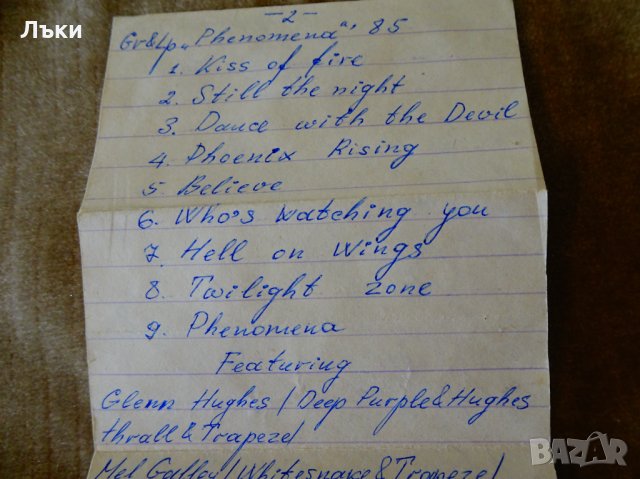 Лъки
- 2 -
Gr&Lp „Phenomena“, 85
1. Kiss of fire
2. Still the night
3. Dance with the Devil
4. Phoenix Rising
5. Believe
6. Who's Watching you
7. Hell on Wings
8. Twilight zone
9. Phenomena
Featuring
Glenn Hughes / Deep Purple & Hughes
thrall & Trapeze /
Mel Galley / Whitesnake & Trapeze /
BAZAR